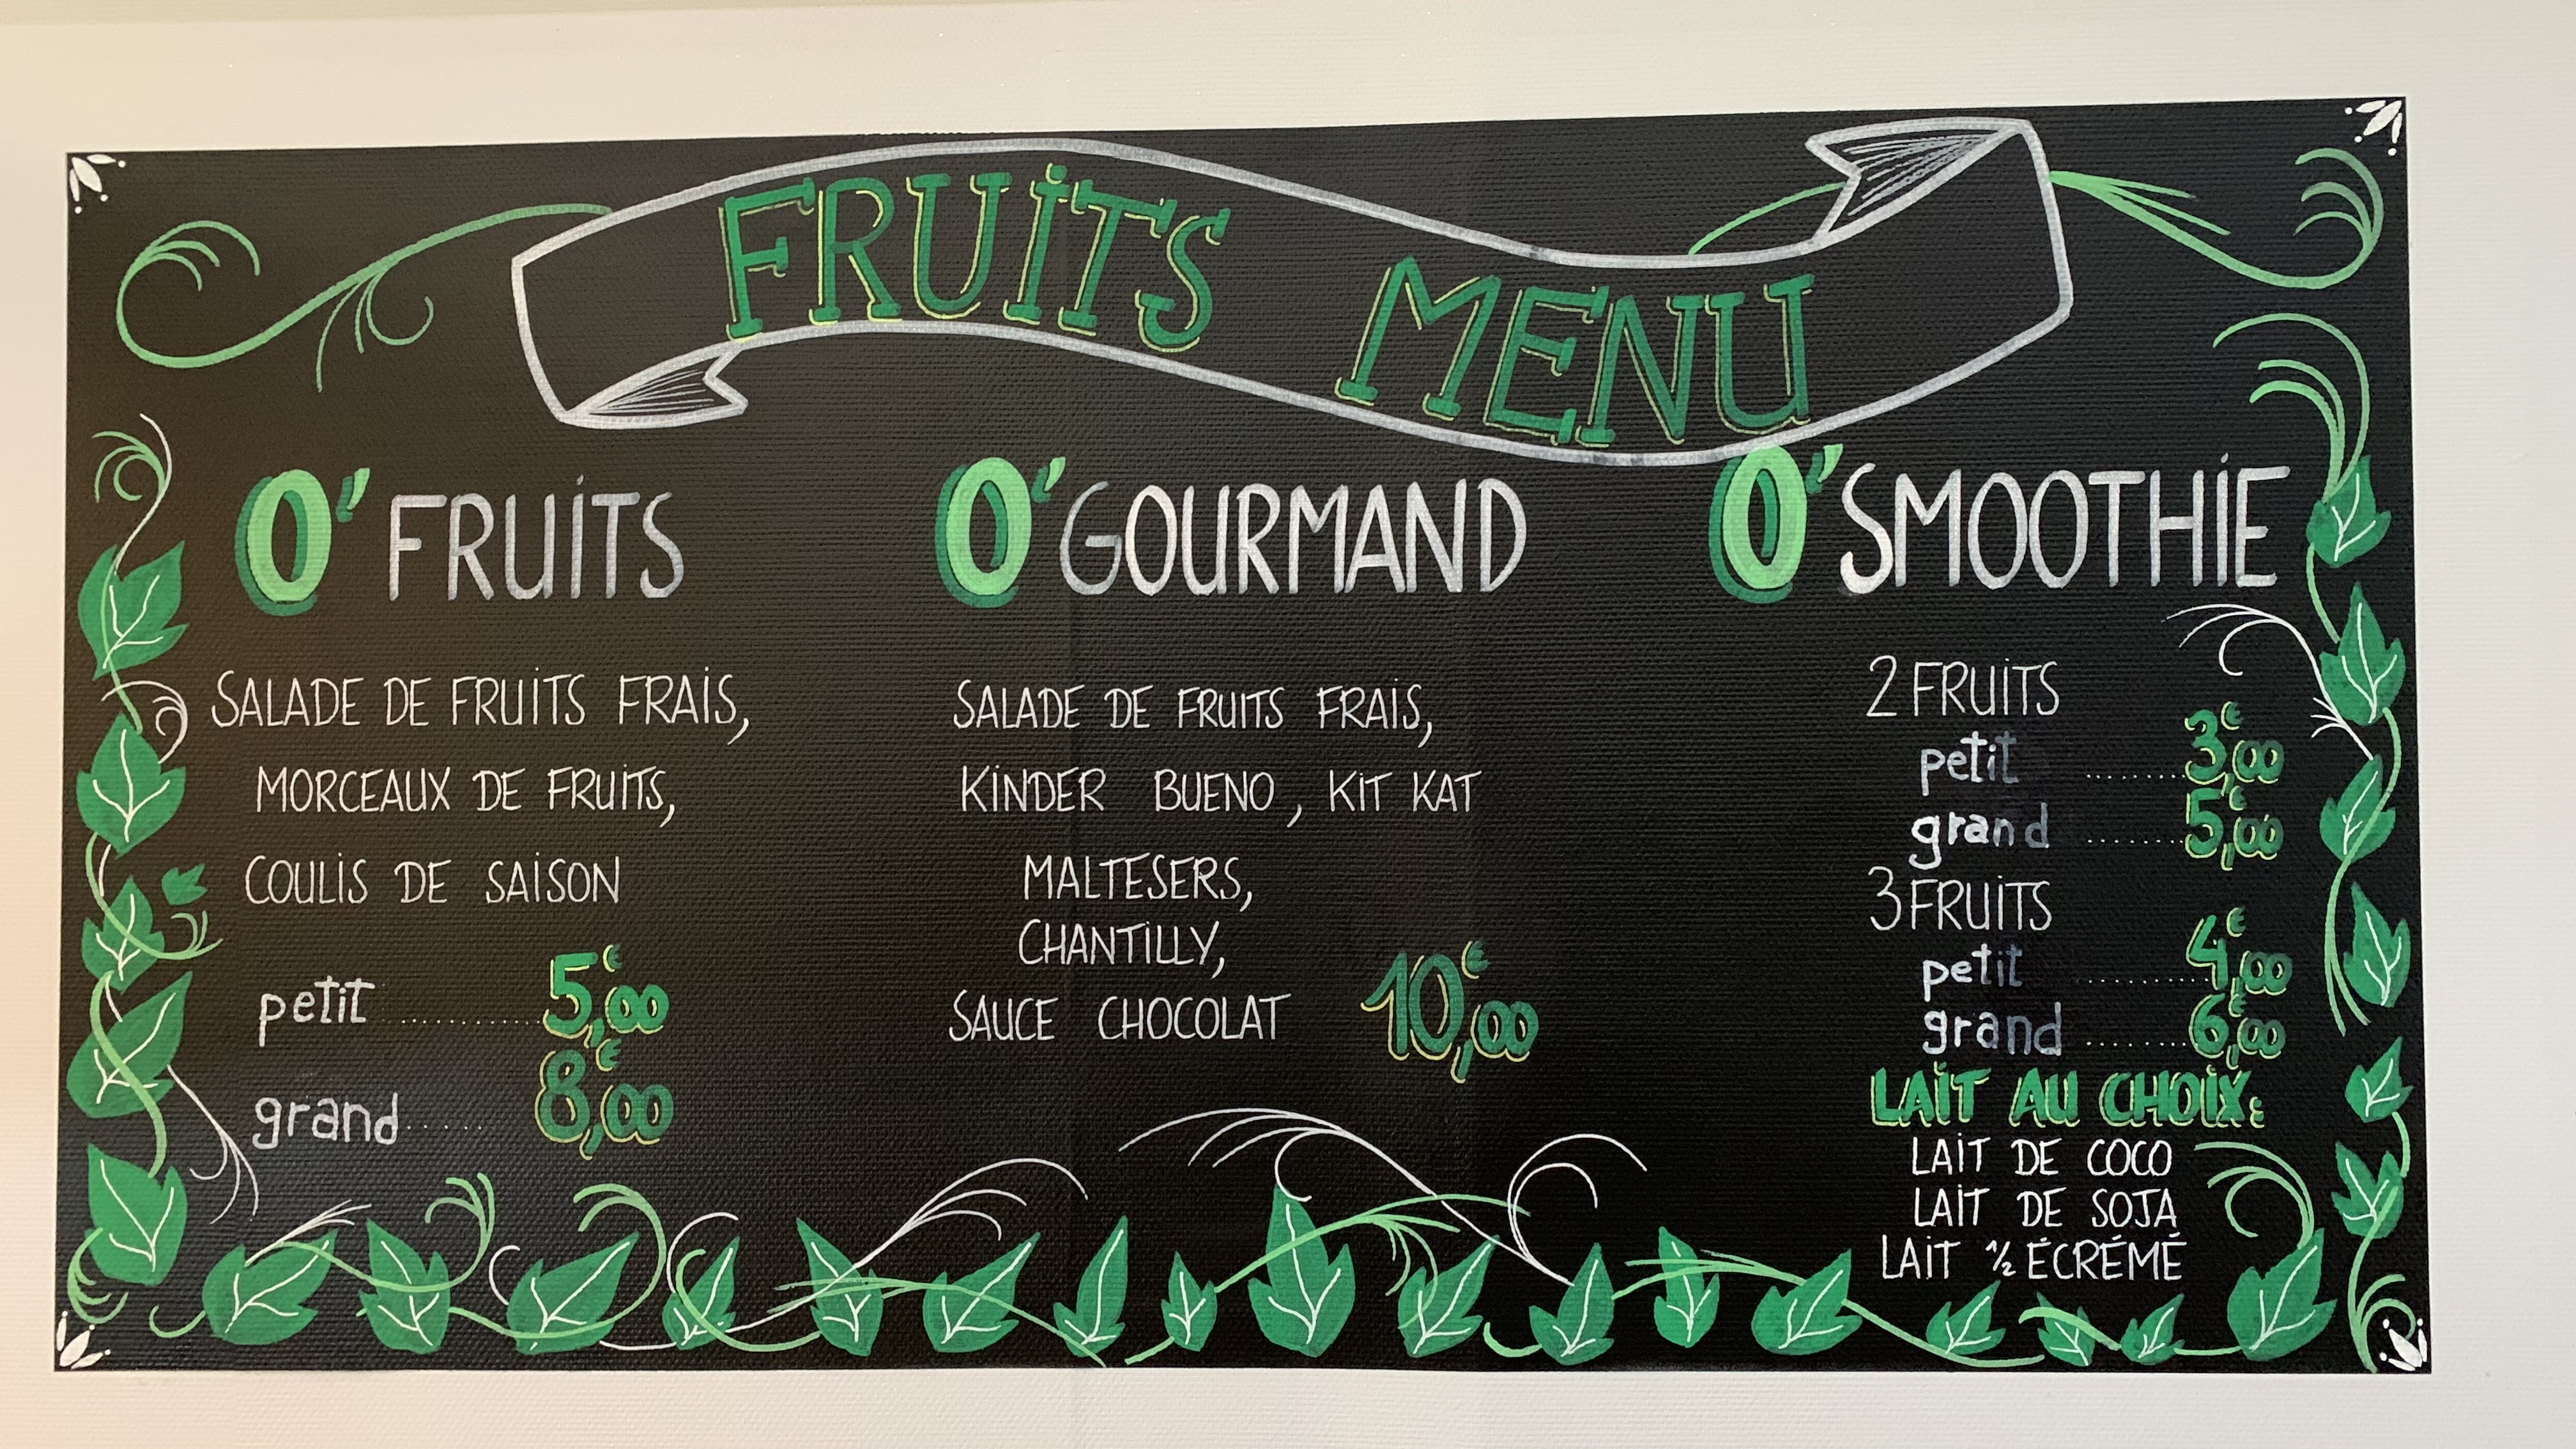 FRUITS MENU
O' FRUITS
SALADE DE FRUITS FRAIS,
MORCEAUX DE FRUITS,
COULIS DE SAISON
petit ............ 5€,00
grand ...... 8€,00
O' GOURMAND
SALADE DE FRUITS FRAIS,
KINDER BUENO, KIT KAT
MALTESERS,
CHANTILLY,
SAUCE CHOCOLAT 10€,00
O' SMOOTHIE
2 FRUITS
petit ........ 3€,00
grand ........ 5€,00
3 FRUITS
petit ........... 4€,00
grand ........ 6€,00
LAIT AU CHOIX:
LAIT DE COCO
LAIT DE SOJA
LAIT 1/2 ÉCRÉMÉ